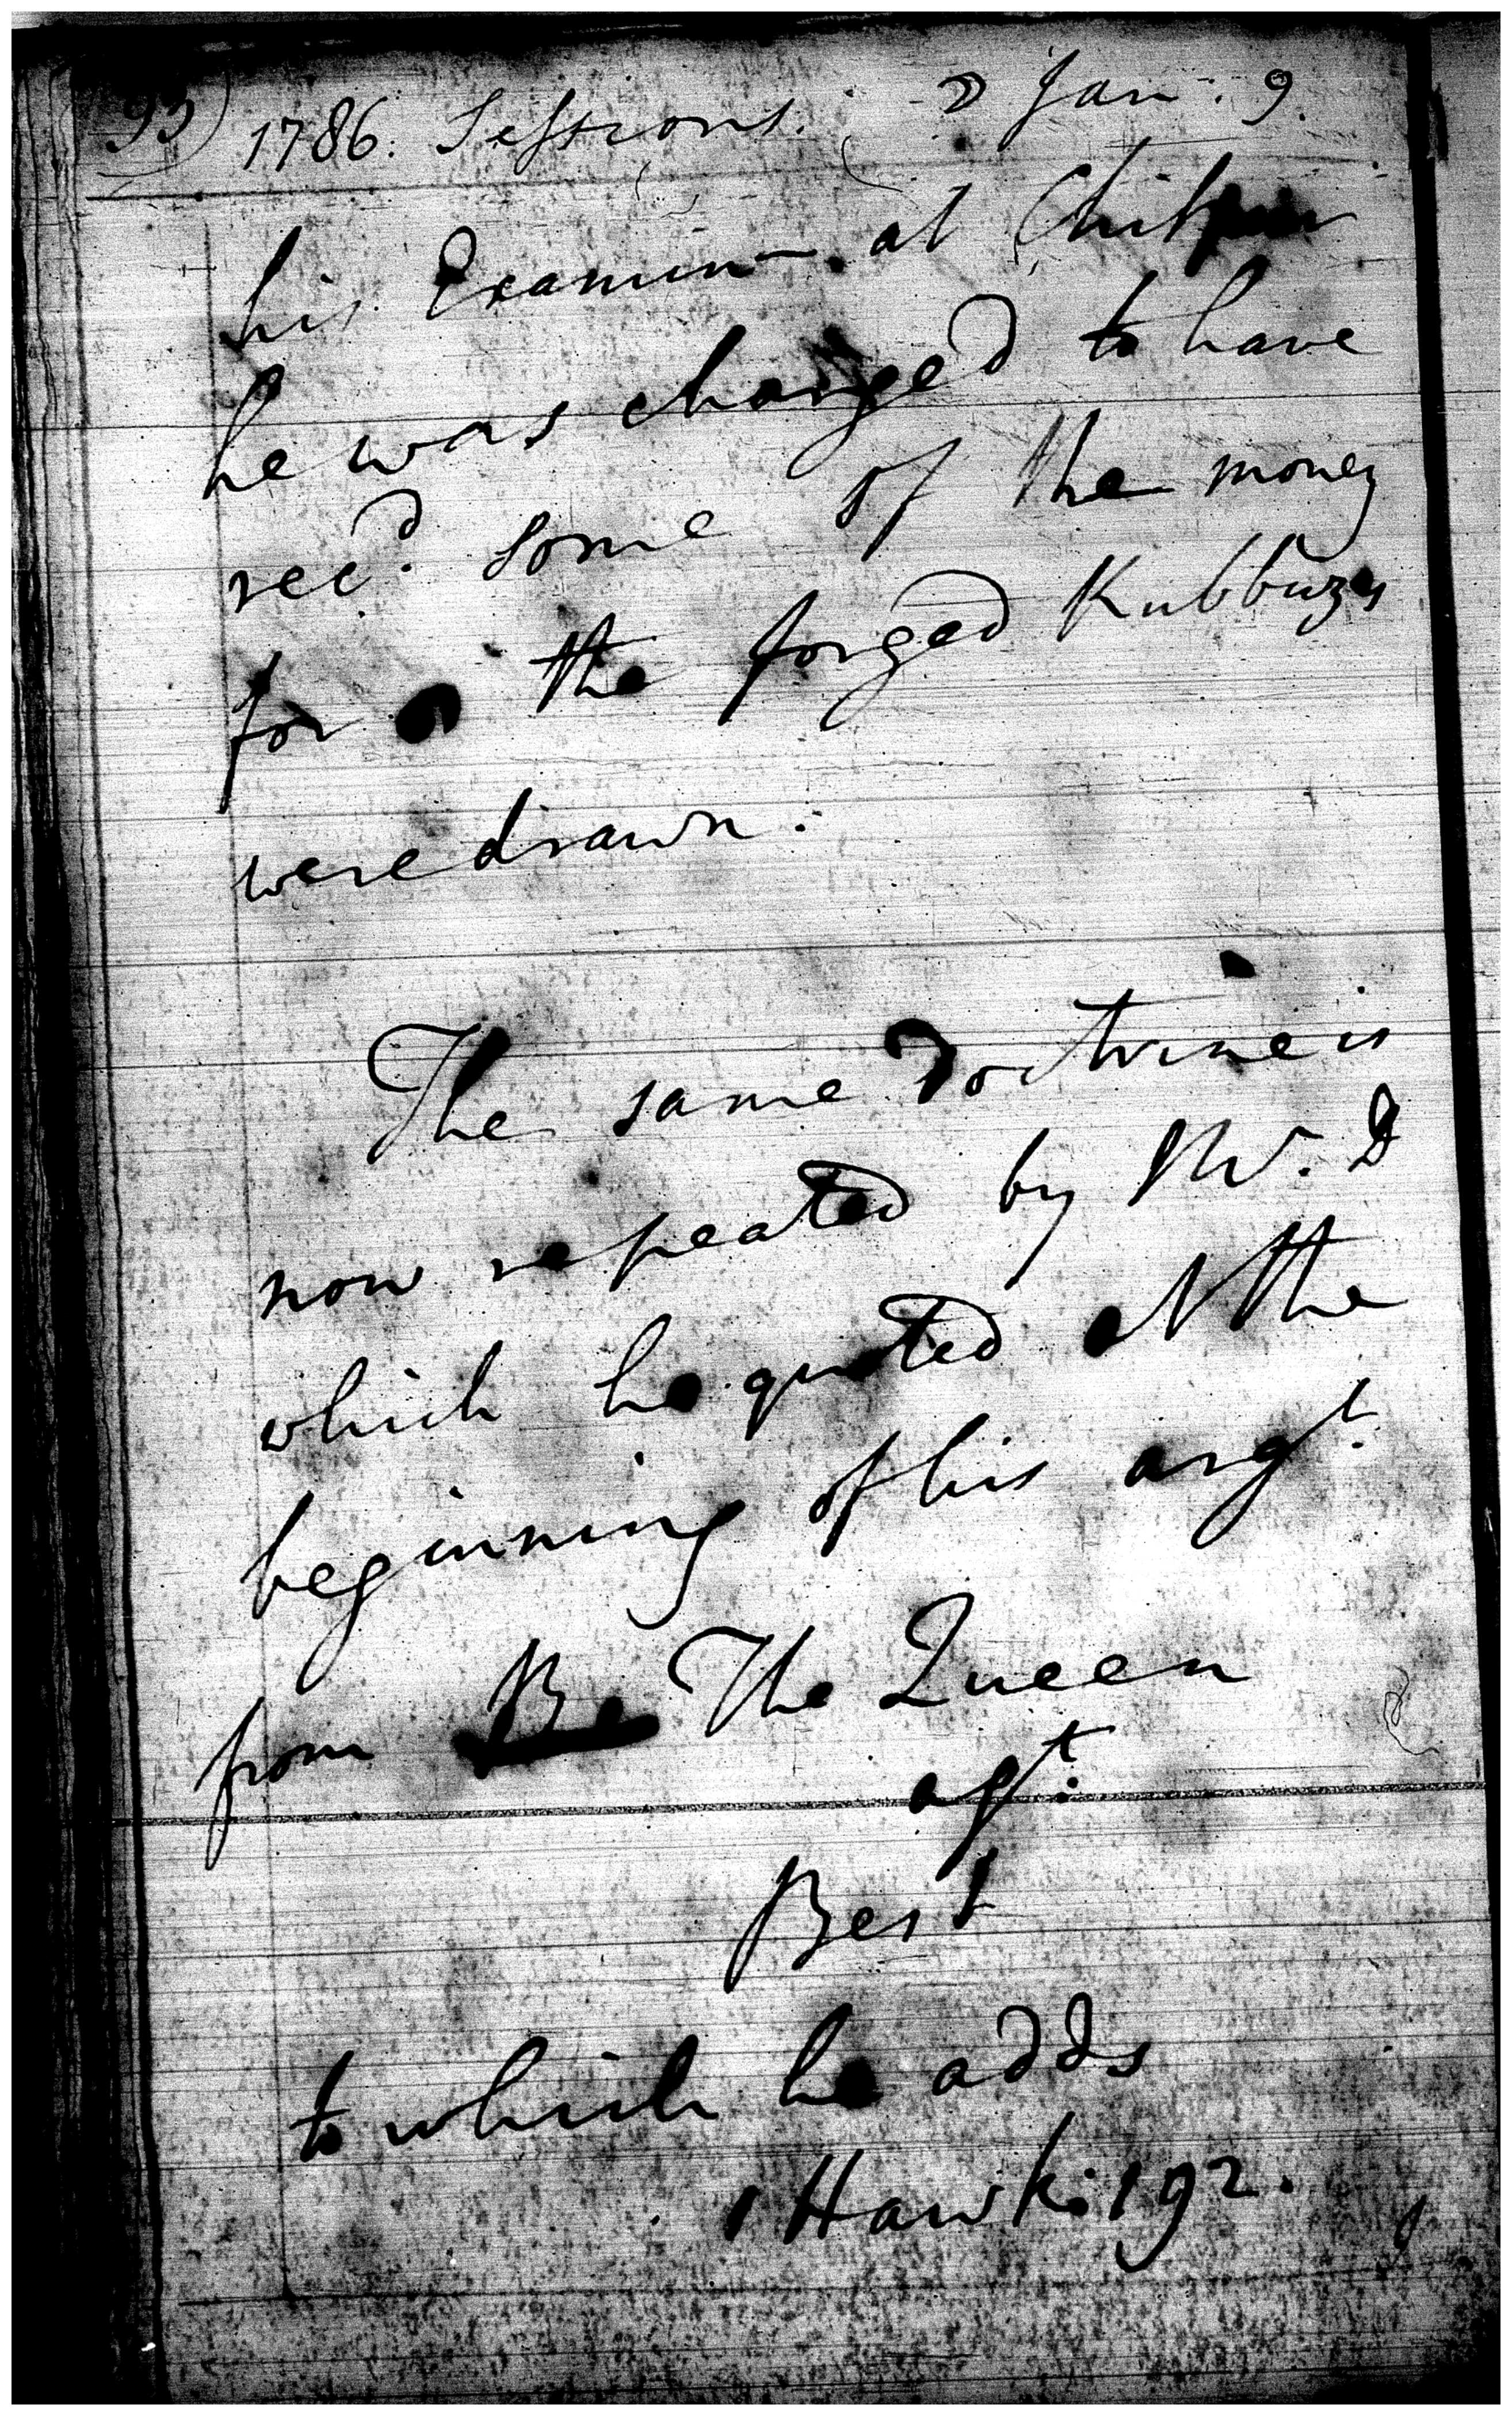 93) 1786. Sessions. ☽ Jan: 9.
his Examin—. at Chitpur
he was charged to have
rec'd. some of the money
for the forged Kubbuzes
were drawn.
The same Doctrine is
now repeated by Mr. D
which he quoted at the
beginning of his argt.
from Be The Queen
agt:
Best
to which he adds
1 Hawk: 192.